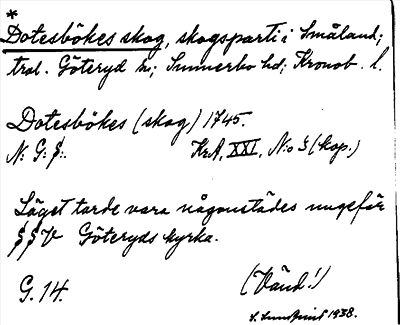 *
Dotesbökes skog, skogsparti i Småland;
trol. Göteryd sn; Sunnerbo hd; Kronob. l.
Dotesbökes (skog) 1745.
N: G: §:. KrA, XXI, N:o 3 (kop.)
Läget torde vara någonstädes ungefär
§§V Göteryds kyrka.
G. 14. (Vänd!)
S. Lundquist 1938.